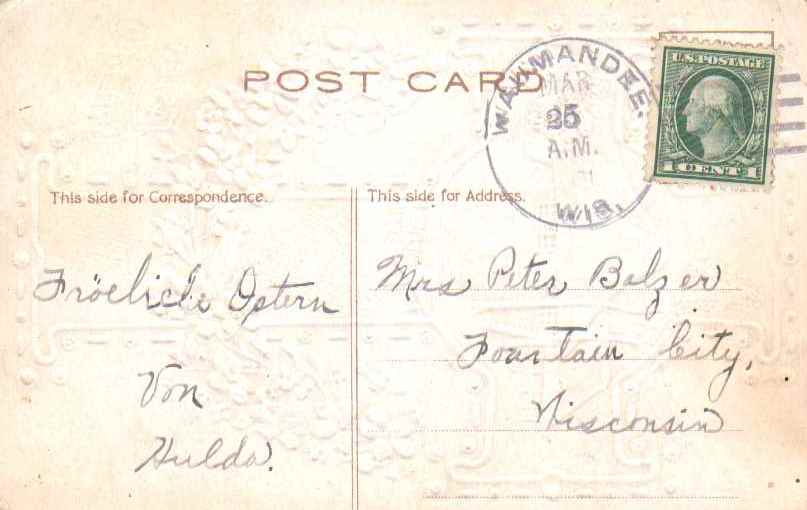 POST CARD
WAUMANDEE.
MAR
25
A.M.
WIS.
U.S. POSTAGE
1 CENT 1
This side for Correspondence.
This side for Address.
Fröeliche Ostern
Von
Hulda.
Mrs Peter Balzer
Fountain City,
Wisconsin